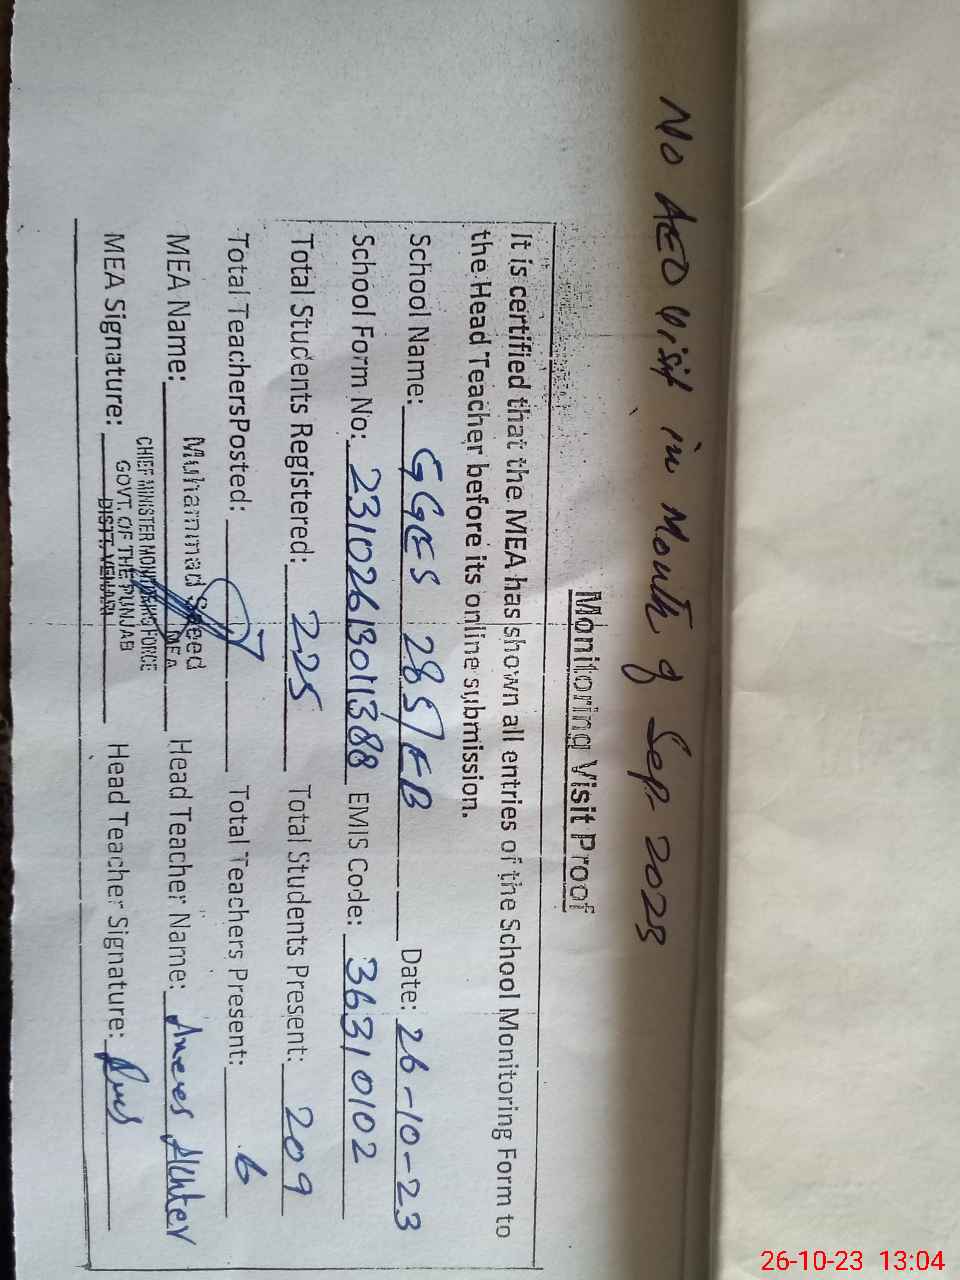 No AEO Visit in Month of Sep- 2023
Monitoring Visit Proof
It is certified that the MEA has shown all entries of the School Monitoring Form to
the Head Teacher before its online submission.
School Name: GGES 285/EB Date: 26-10-23
School Form No: 23102613011388 EMIS Code: 36310102
Total Students Registered: 225 Total Students Present: 209
Total TeachersPosted: 7 Total Teachers Present: 6
MEA Name: Muhammad Saeed Head Teacher Name: Akhter
MEA
CHIEF MINISTER MONITORING FORCE
GOVT. OF THE PUNJAB
DISTT. VEHARI
MEA Signature: Head Teacher Signature:
26-10-23 13:04